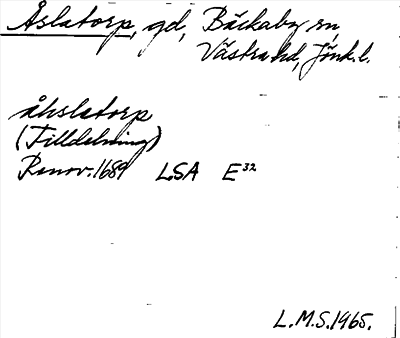 Åslatorp, gd, Bäckaby sn,
Västra hd, Jönk.l.
åhslatorp
(Tilldelning)
Renov. 1689 LSA E³²
L.M.S. 1965.